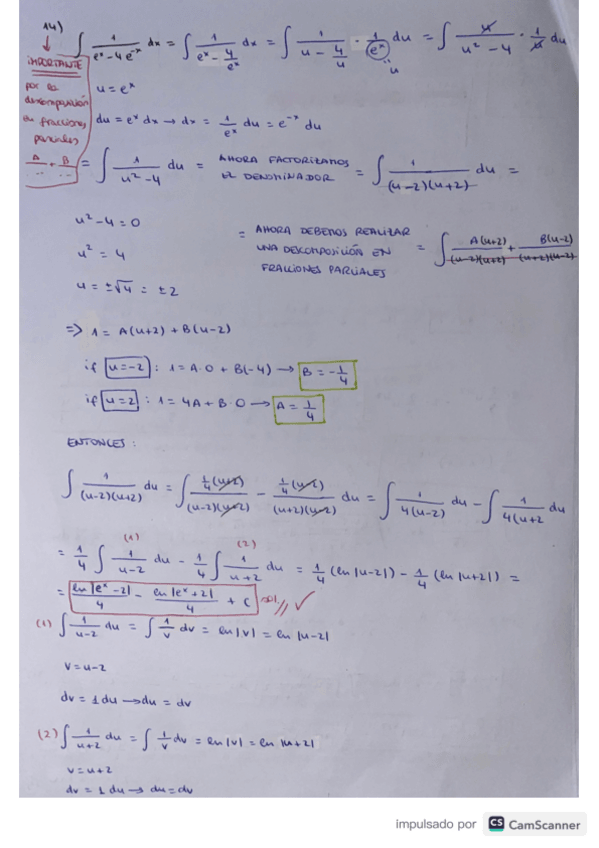 14) ∫ 1/(eˣ-4e⁻ˣ) dx = ∫ 1/(eˣ - 4/eˣ) dx = ∫ 1/(u - 4/u) · 1/(eˣ) du = ∫ u/(u²-4) · 1/u du
u
IMPORTANTE
por la
descomposición
en fracciones
parciales
A/.. + B/..
u = eˣ
du = eˣ dx → dx = 1/eˣ du = e⁻ˣ du
= ∫ 1/(u²-4) du = AHORA FACTORIZAMOS EL DENOMINADOR = ∫ 1/((u-2)(u+2)) du =
u²-4=0
u² = 4
u = ±√4 = ±2
= AHORA DEBEMOS REALIZAR
UNA DESCOMPOSICIÓN EN
FRACCIONES PARCIALES
= ∫ A(u+2)/((u-2)(u+2)) + B(u-2)/((u+2)(u-2))
=> 1 = A(u+2) + B(u-2)
if u=-2 : 1=A·0 + B(-4) → B = -1/4
if u=2 : 1=4A+B·0 → A = 1/4
ENTONCES :
∫ 1/((u-2)(u+2)) du = ∫ 1/4(u+2)/((u-2)(u+2)) - 1/4(u-2)/((u+2)(u-2)) du = ∫ 1/(4(u-2)) du - ∫ 1/(4(u+2 du
(1) (2)
= 1/4 ∫ 1/(u-2) du - 1/4 ∫ 1/(u+2) du = 1/4 (ln|u-2|) - 1/4 (ln|u+2|) =
= ln|eˣ-2|/4 - ln|eˣ+2|/4 + C sol. // ✓
(1) ∫ 1/(u-2) du = ∫ 1/v dv = ln|v| = ln|u-2|
v = u-2
dv = 1 du → du = dv
(2) ∫ 1/(u+2) du = ∫ 1/v dv = ln|v| = ln|u+2|
v = u+2
dv = 1 du → du = dv
impulsado por CS CamScanner